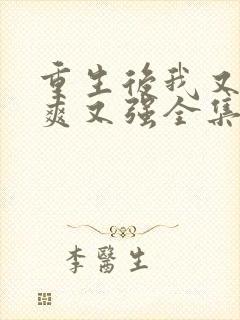 重生後我又
爽又强全集
李醫生